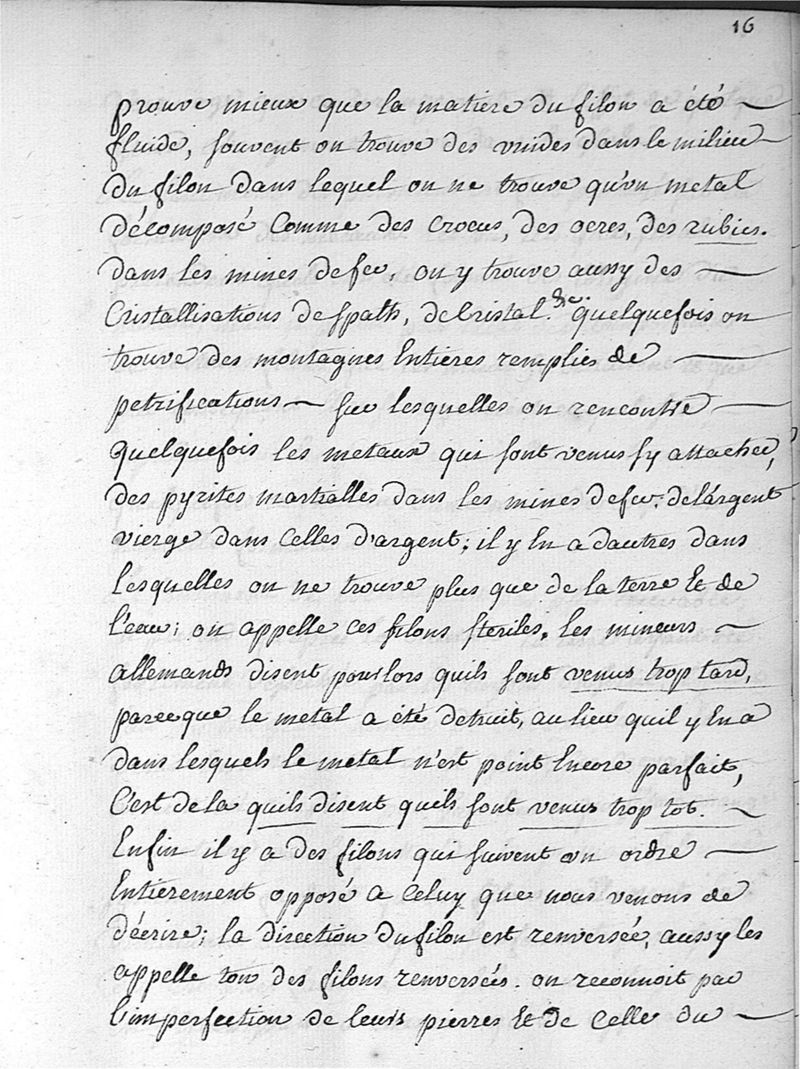 16
prouve mieux que la matiere du filon a été
fluide, souvent on trouve des vuides dans le milieu
du filon dans lequel on ne trouve qu'un metal
décomposé comme des crocus, des ocres, des rubies.
dans les mines de fer, on y trouve aussy des
Cristallisations de spath, de Cristal. &c. quelquefois on
trouve des montagnes Entieres remplies de
petrifications sur lesquelles on rencontre
quelquefois les metaux qui sont venus s'y attacher,
des pyrites martialles dans les mines de fer, de l'argent
vierge dans Celles d'argent; il y En a dautres dans
lesquelles on ne trouve plus que de la terre Et de
l'eau; on appelle ces filons steriles. les mineurs
allemands disent pourlors quils sont venus trop tard,
parceque le metal a été detruit, au lieu quil y En a
dans lesquels le metal n'est point Encore parfait,
C'est de la quils disent quils sont venus trop tot.
Enfin il y a des filons qui suivent un ordre
Entierement opposé a Celuy que nous venons de
décrire; la direction du filon est renversée, aussy les
appelle ton des filons renversés. on reconnoit par
l'imperfection de leurs pierres Et de Celle du